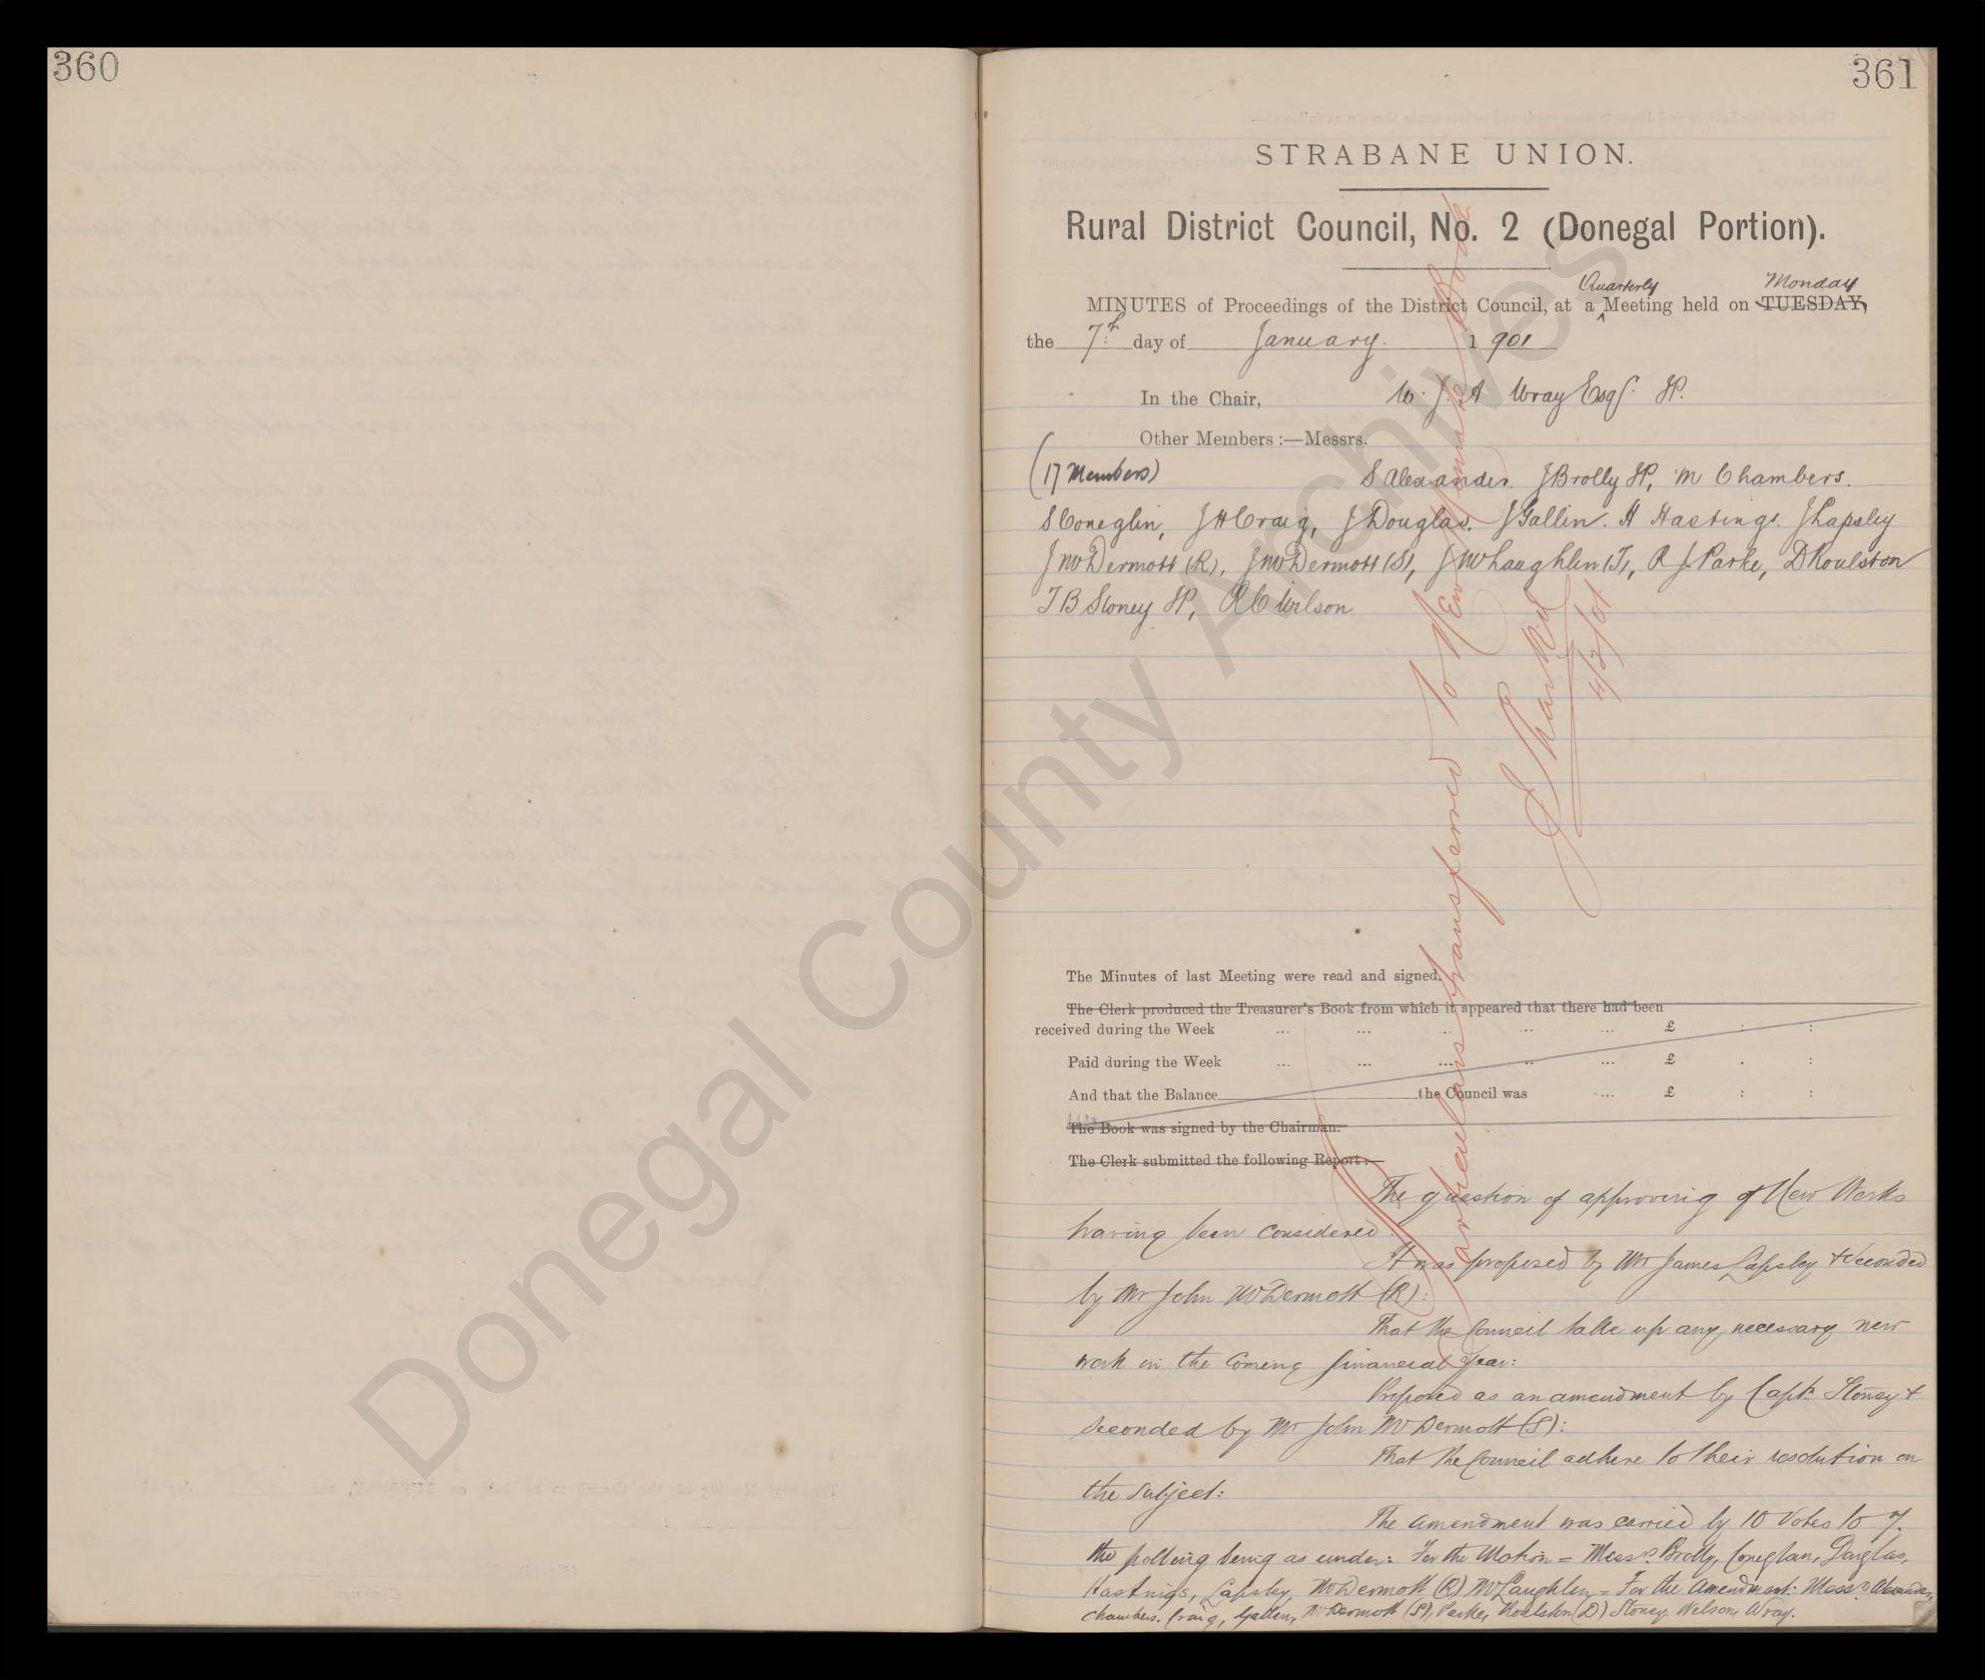 360
361
STRABANE UNION.
Rural District Council, No. 2 (Donegal Portion).
Quarterly Monday
MINUTES of Proceedings of the District Council, at a Meeting held on TUESDAY,
the 7th day of January. 1901
In the Chair, W. J. A Wray Esqr. JP.
Other Members :—Messrs.
(17 Members) S Alexander. J Brolly JP, M Chambers.
S Coneglin, J H Craig, J Douglas. J Gallin. H Hastings. J Lapsley
J McDermott (R), J McDermott (S), J McLaughlin (T), R J Parke, D Roulston
T B Stoney JP, R C Wilson
The Minutes of last Meeting were read and signed.
The Clerk produced the Treasurer's Book from which it appeared that there had been
received during the Week ... ... ... ... ... £ : :
Paid during the Week ... ... ... ... ... £ . :
And that the Balance the Council was ... £ : :
The Book was signed by the Chairman.
The Clerk submitted the following Report:—
The question of approving of New Works
having been considered.
It was proposed by Mr James Lapsley & seconded
by Mr John McDermott (R):
That the Council take up any necessary new
work in the Coming financial Year:
Proposed as an amendment by Capt. Stoney &
seconded by Mr John McDermott (S):
That the Council adhere to their resolution on
the subject:
The amendment was carried by 10 Votes to 7.
the polling being as under: For the Motion = Messrs Brolly, Coneglan, Douglas,
Hastings, Lapsley, McDermott (R) McLaughlin = For the Amendment: Messrs Alexander,
Chambers. Craig, Gallen, McDermott (S), Parke, Roulston (D) Stoney. Wilson, Wray.
transferred to New
4/2/01
Donegal County Archives